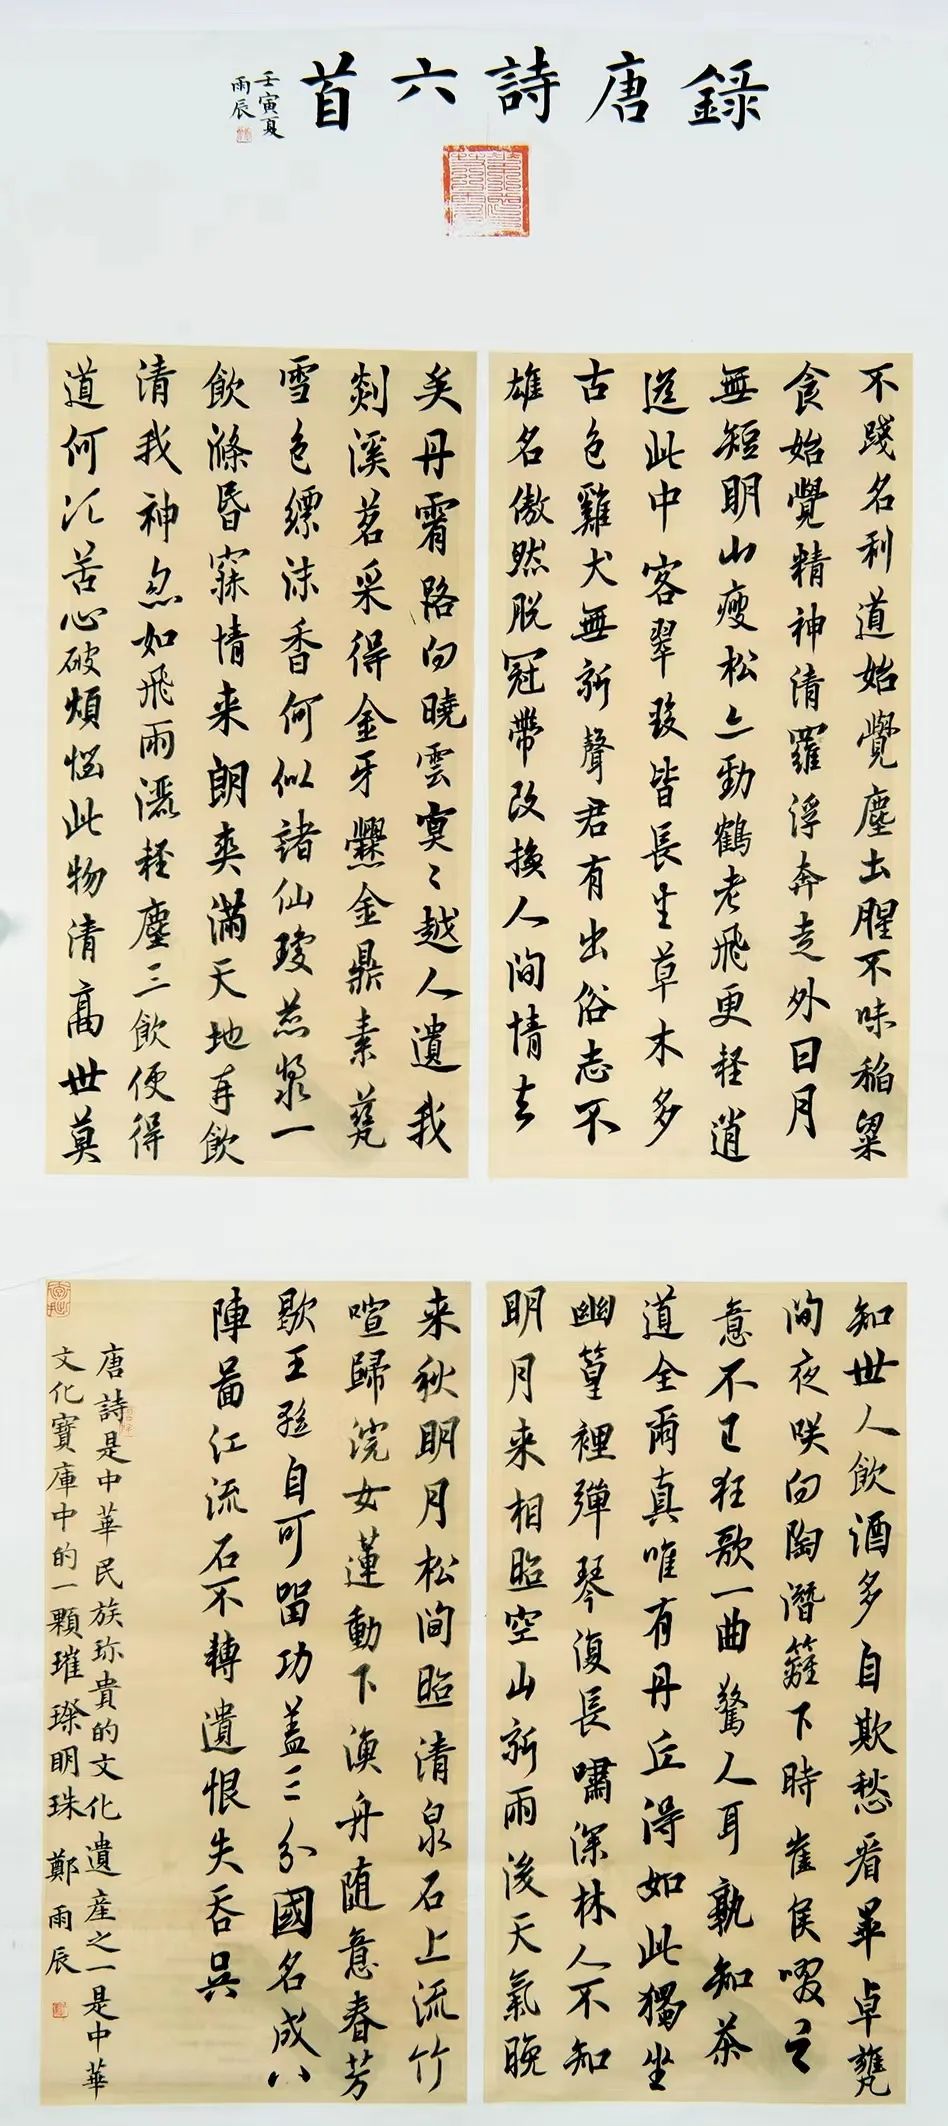 錄唐詩六首
壬寅夏
雨辰
不踐名利道始覺塵土腥不味稻粱
食始覺精神清羅浮奔走外日月
無短明山瘦松亦勁鶴老飛更輕逍
遙此中客翠髮皆長生草木多
古色雞犬無新聲君有出俗志不
雄名傲然脫冠帶改換人間情去
矣丹霄路向曉雲冥〻越人遺我
剡溪茗采得金牙爨金鼎素甆
雪色縹沫香何似諸仙瓊蕊漿一
飲滌昏寐情来朗爽滿天地再飲
清我神忽如飛雨灑輕塵三飲便得
道何須苦心破煩惱此物清高世莫
知世人飲酒多自欺愁看畢卓甕
間夜咲向陶潛籬下時崔侯啜之
意不已狂歌一曲驚人耳孰知茶
道全爾真唯有丹丘得如此獨坐
幽篁裡彈琴復長嘯深林人不知
明月来相照空山新雨後天氣晚
来秋明月松間照清泉石上流竹
喧歸浣女蓮動下漁舟随意春芳
歇王孫自可留功盖三分國名成八
陣啚江流石不轉遺恨失吞吳
唐詩是中華民族珎貴的文化遺産之一是中華
文化寶庫中的一顆璀璨明珠 鄭雨辰